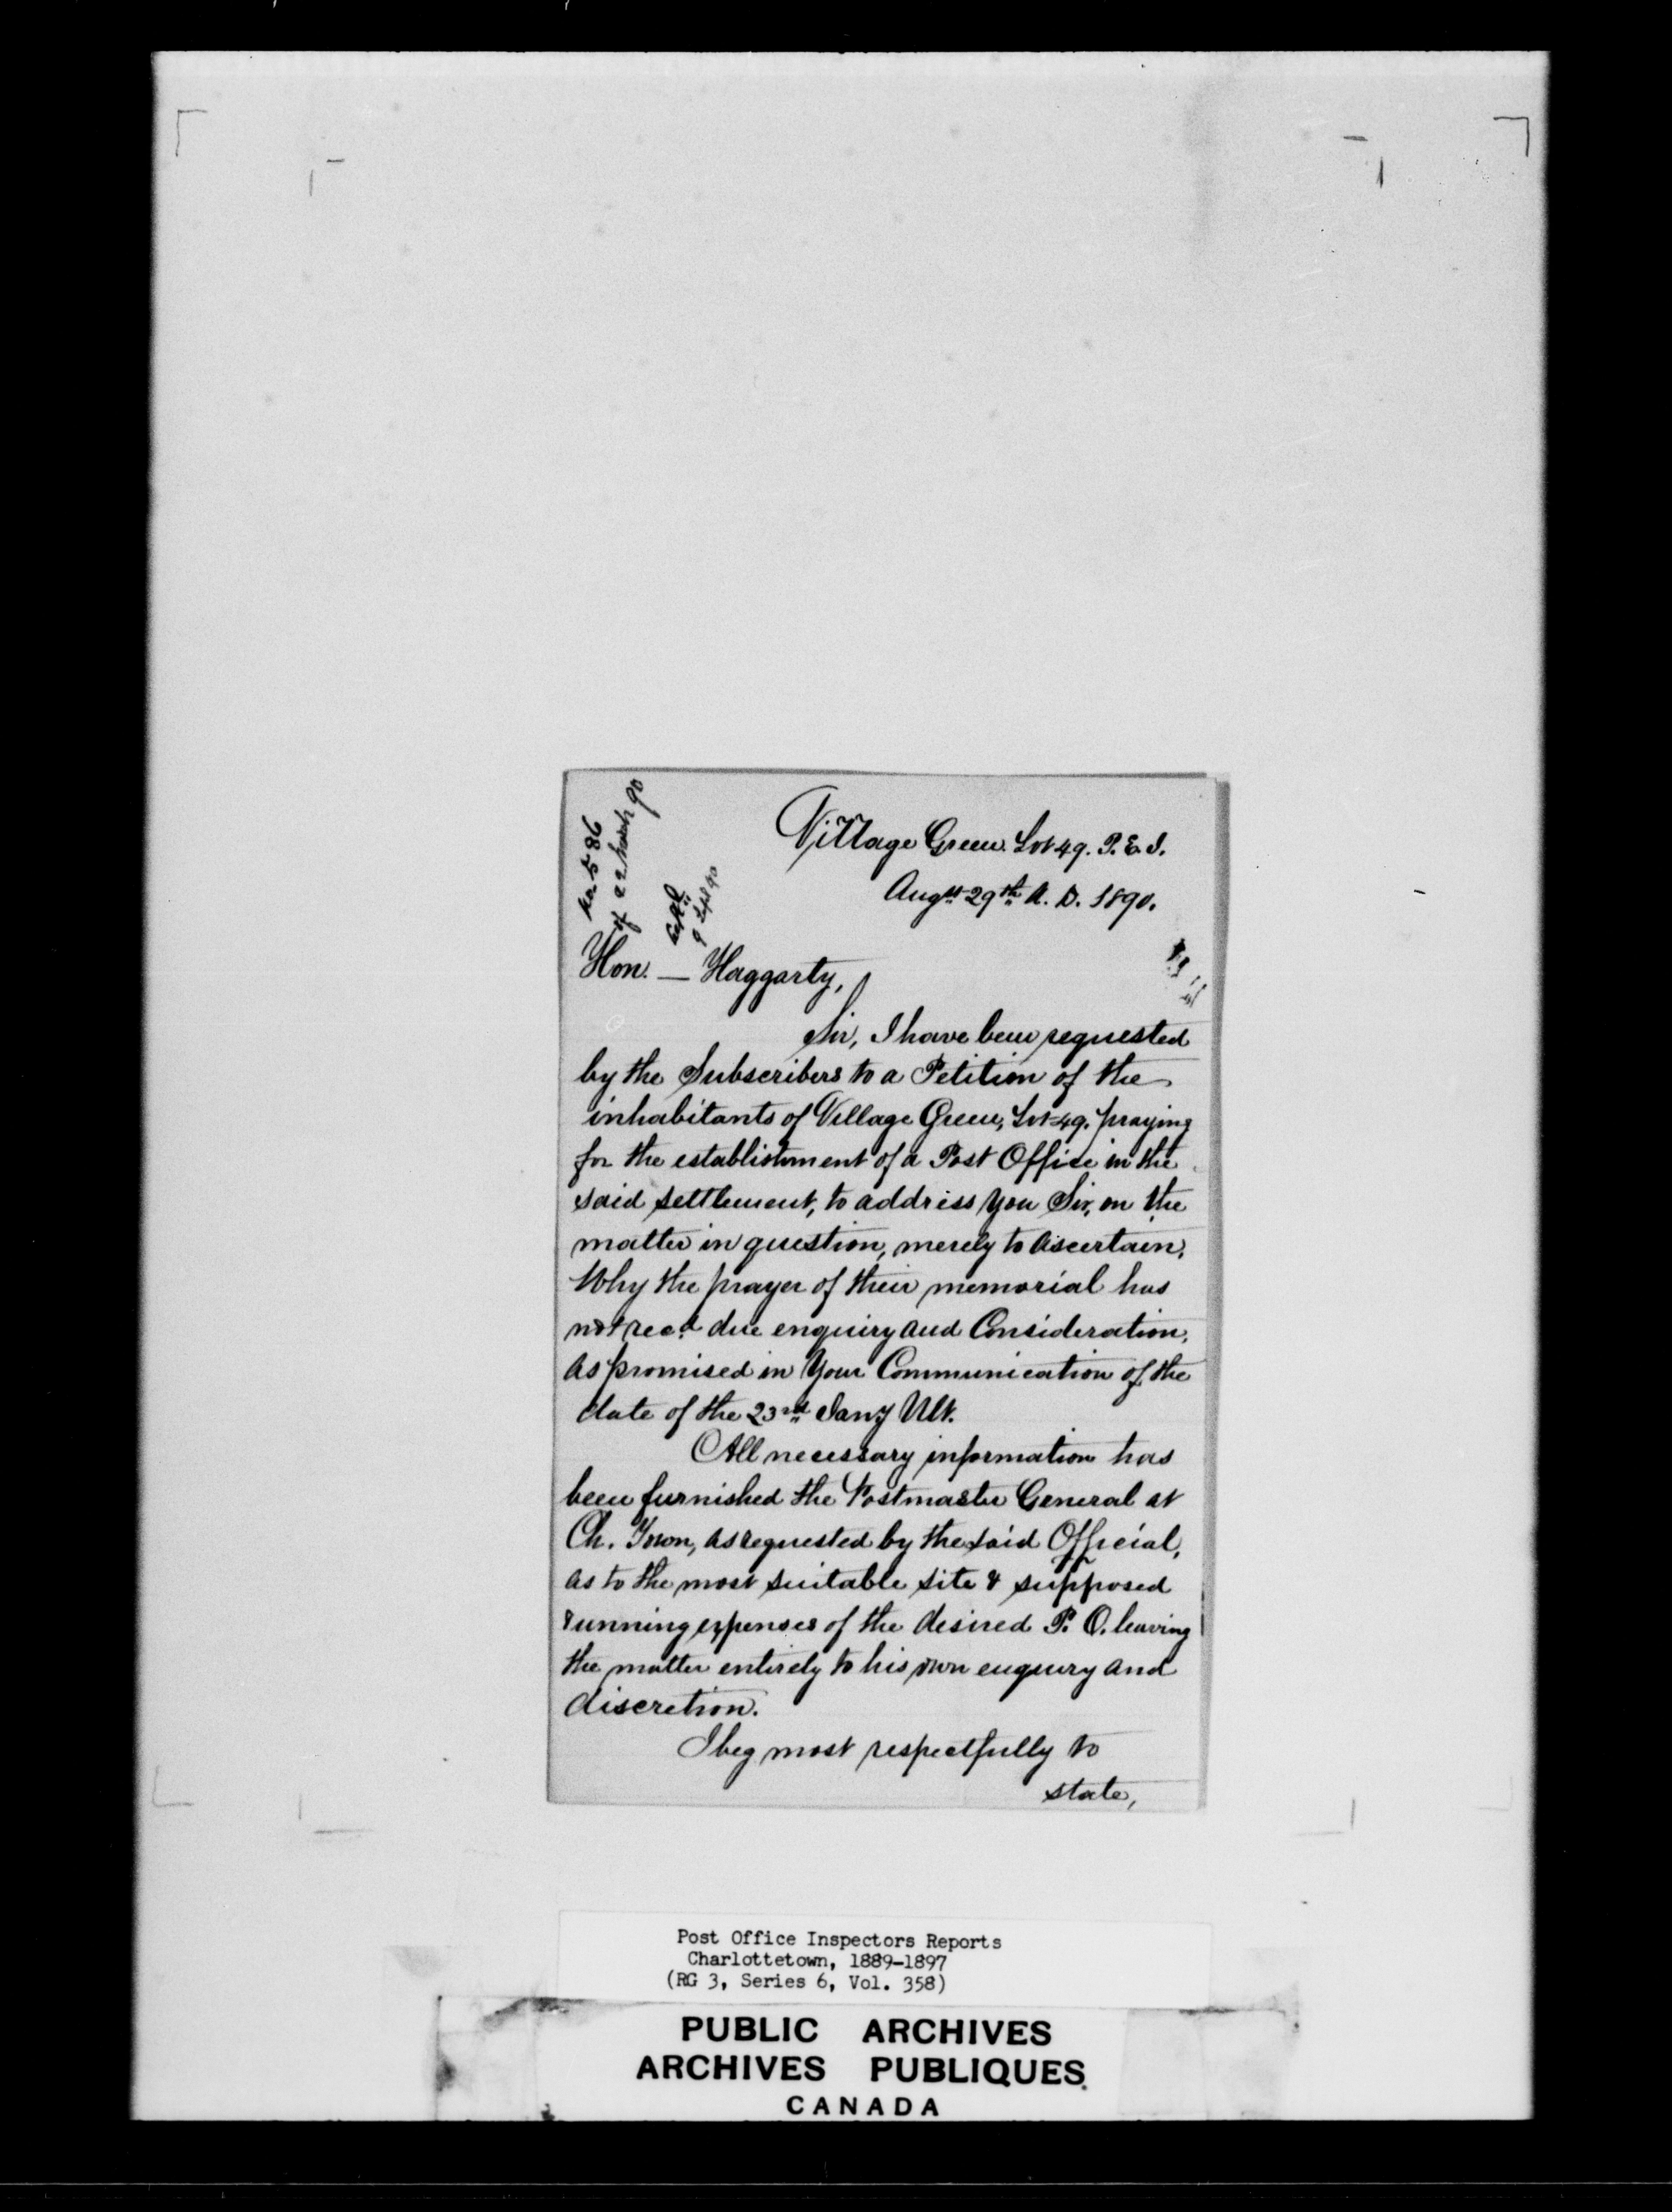 of 22 March 90
9 Sept 90
Village Green. Lot 49. P. E. I.
Augst 29th A. D. 1890.
Hon. — Haggarty,
Sir, I have been requested
by the Subscribers to a Petition of the
inhabitants of Village Green, Lot 49. praying
for the establishment of a Post Office in the
said settlement, to address you Sir, on the
matter in question, merely to ascertain,
Why the prayer of their memorial has
not recd. due enquiry and Consideration,
as promised in Your Communication of the
date of the 23rd Jany Ult.
All necessary information has
been furnished the Postmaster General at
Ch. Town, as requested by the said Official,
as to the most suitable site & supposed
running expenses of the desired P. O. leaving
the matter entirely to his own enquiry and
discretion.
I beg most respectfully to
state,
Post Office Inspectors Reports
Charlottetown, 1889-1897
(RG 3, Series 6, Vol. 358)
PUBLIC ARCHIVES
ARCHIVES PUBLIQUES
CANADA